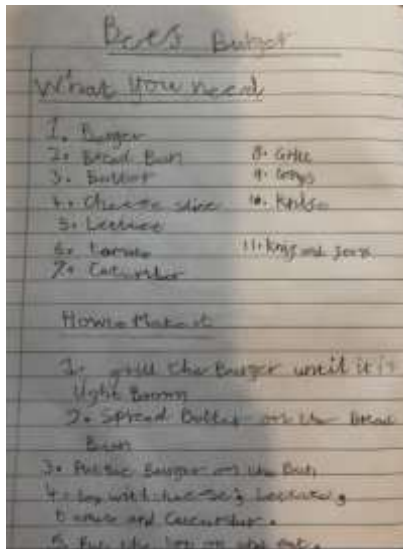 Burger
What you need
1. Burger
2. Bread Bun
3. Butter
4. Cheese slice
5. Lettuce
6. tomato
7. Cucumber
8. Grill
9.
10. Knife
11. and
How to Make it
1. grill the Burger until it is
light Brown
2. Spread Butter on the Bread
Bun
3. Put the Burger on the Bun
4. top with cheese, Lettuce,
tomato and Cucumber.
5. Put the top on and eat.